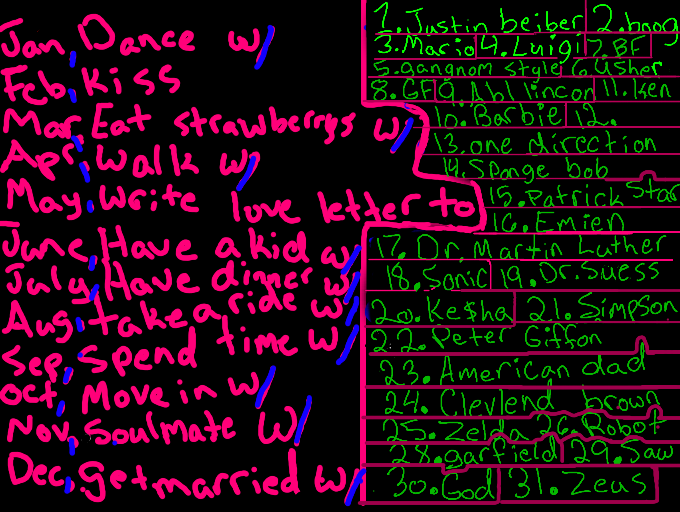 Jan, Dance w/
Feb, kiss
Mar, Eat strawberrys w/
Apr, walk w/
May, write love letter to
June, Have a kid w/
July, Have dinner w/
Aug, take a ride w/
Sep, spend time w/
Oct, Move in w/
Nov, Soulmate w/
Dec, get married w/
1. Justin beiber 2. boog
3. Mario 4. Luigi 7. BF
5. gangnom style 6. Usher
8. GF 9. Abl lincon 11. ken
10. Barbie 12.
13. one direction
14. Sponge bob
15. Patrick Star
16. Emien
17. Dr. Martin Luther
18. Sonic 19. Dr. Suess
20. Ke$ha 21. Simpson
22. Peter Giffon
23. American dad
24. Clevlend brown
25. Zelda 26. Robot
28. garfield 29. Saw
30. God 31. Zeus